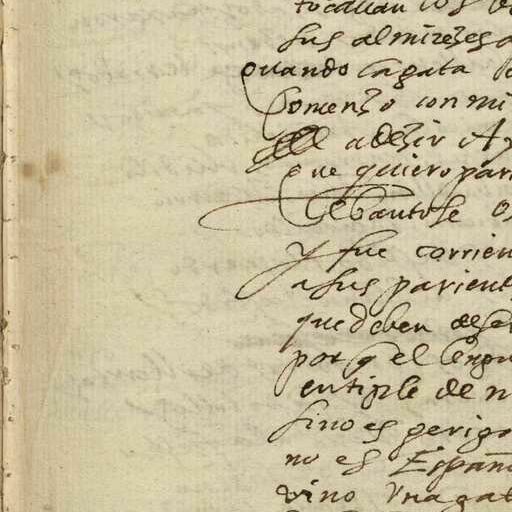 tocauan los
sus almireçes
quando la gata
Començo con mi
a deçir Ay
que quiero pari
Lebantose
y fue corrien
a sus parient
que deben de ser
por q el lengu
entiple de n
sino es gerigo
no es Españ
vino vna gat